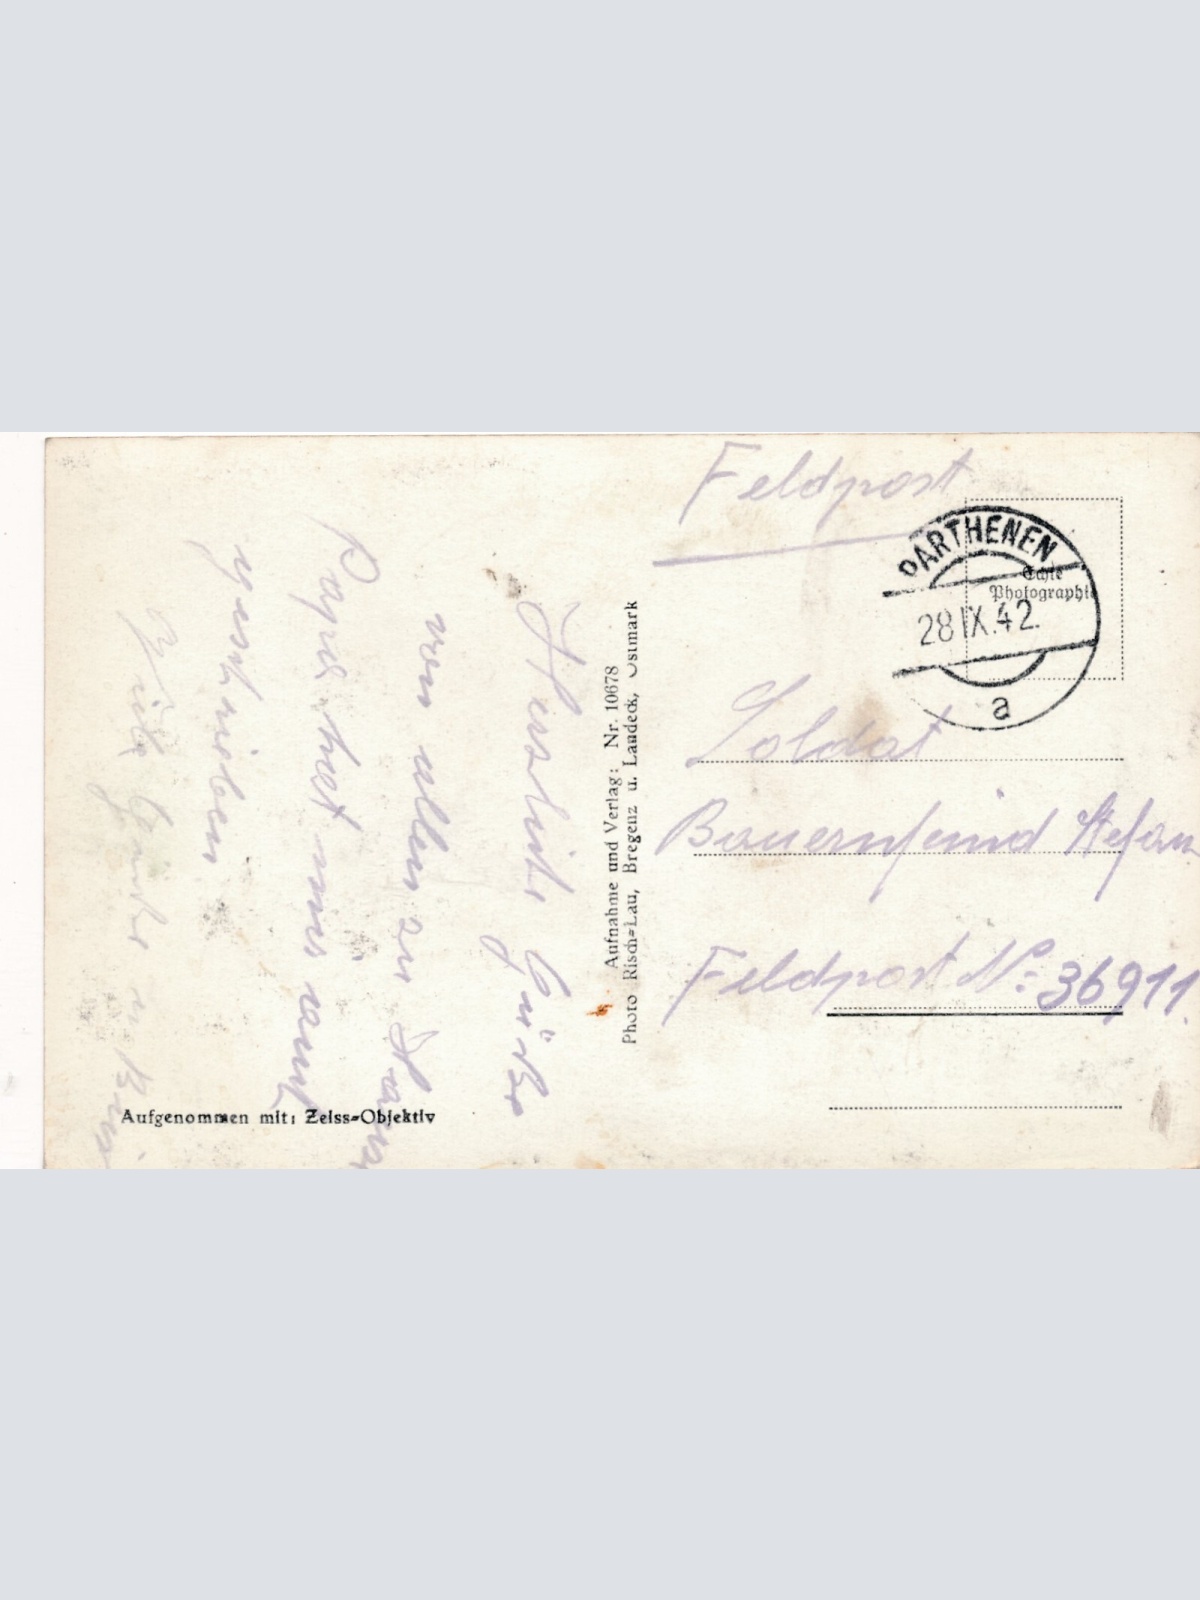 Feldpost
PARTHENEN
28 IX. 42.
a
Echte
Photographie
Soldat
Bauernfeind Stefan
Feldpost Nº: 36911.
Aufnahme und Verlag: Nr. 10678
Photo Risch-Lau, Bregenz u. Landeck, Ostmark
Herzliche Grüße
von allen zu Hause
Papa hat uns auch
geschrieben
Viele Grüße u.
Aufgenommen mit: Zeiss-Objektiv